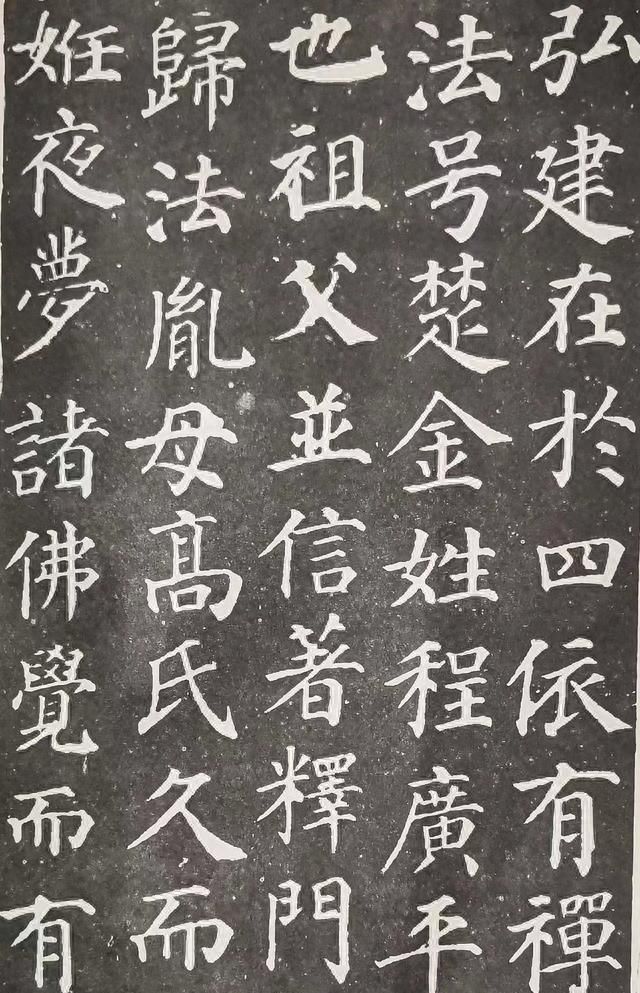 弘建在於四依有禪
法号楚金姓程廣平
也祖父並信著釋門
歸法胤母高氏久而
姙夜夢諸佛覺而有